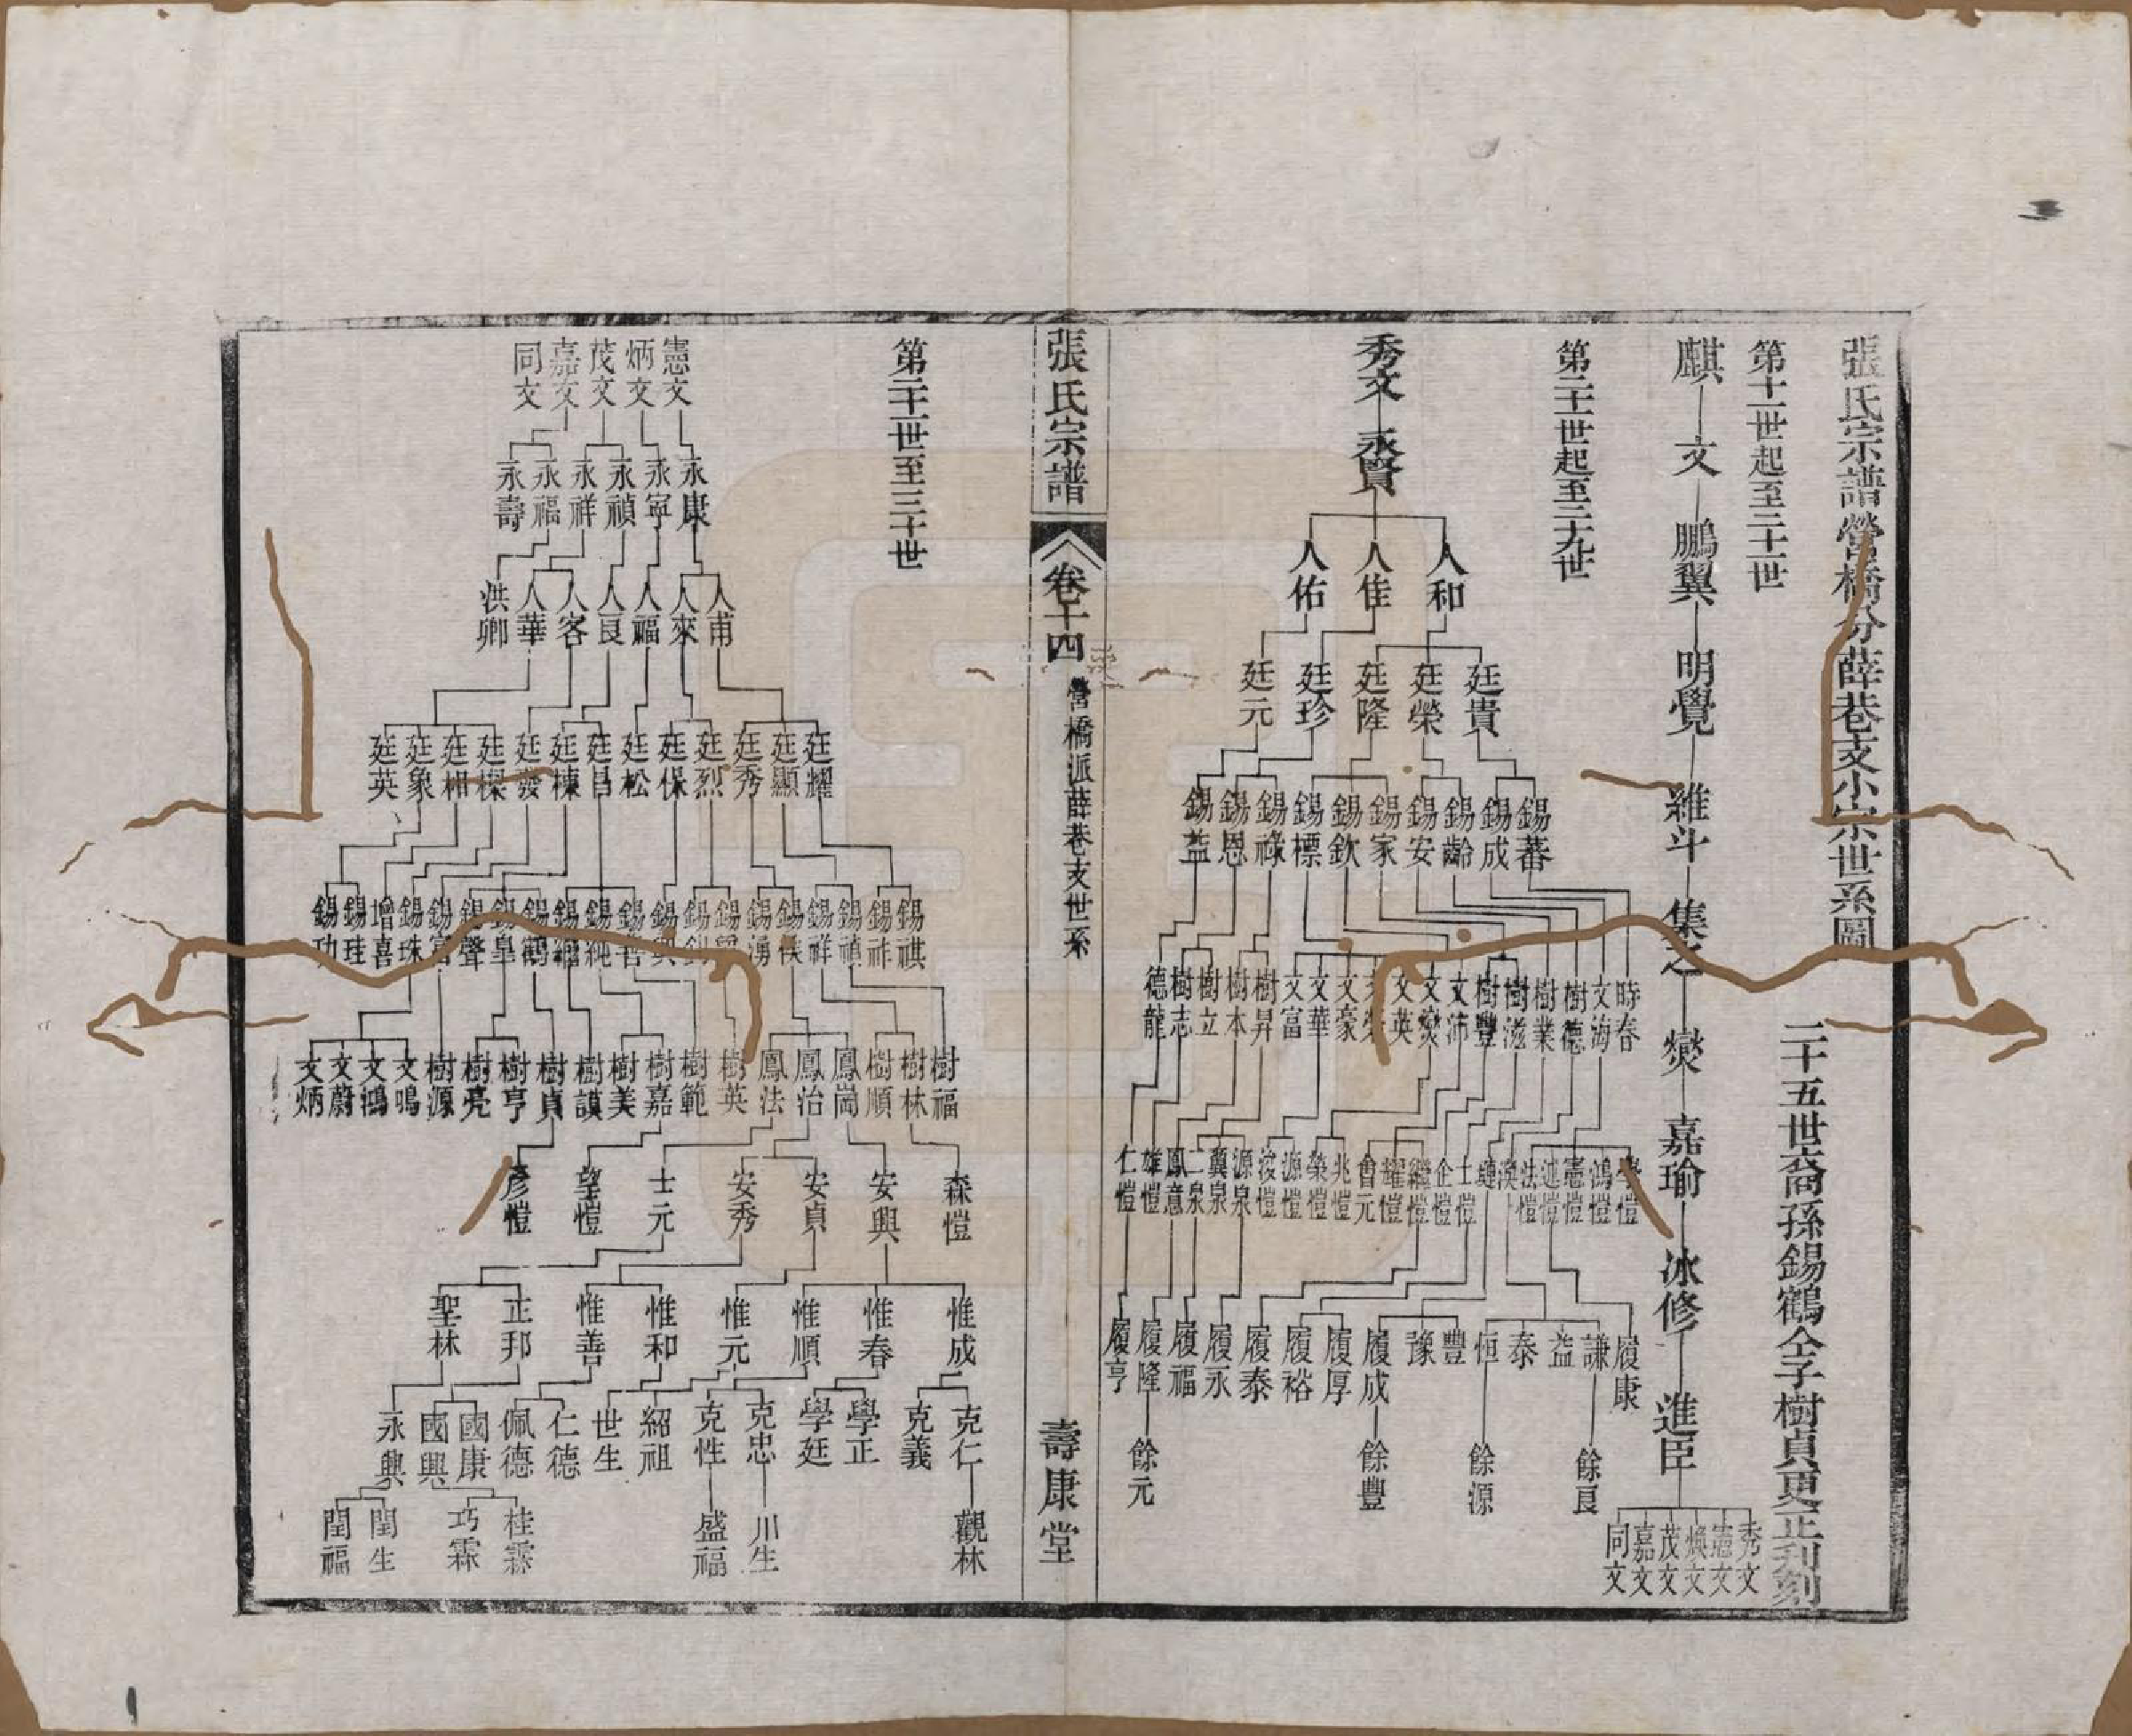 張氏宗譜營橋分薛巷支小宗世系圖
二十五世裔孫錫鶴仝子樹貞更正刊刻
第十一世起至二十一世
麒 文 鵬翼 明覺 維斗 集之 燮 嘉瑜 冰修 進臣
秀文 憲文 煥文 茂文 嘉文 同文
第二十一世起至二十九世
秀文 永賢
人和 人佳 人佑
廷貴 廷榮 廷隆 廷珍 廷元
錫蕃 錫成 錫齡 錫安 錫家 錫欽 錫標 錫祿 錫恩 錫益
時春 文海 樹德 樹業 樹滋 樹豐 文沛 文燠 文英 文豪 文華 文富 樹昇 樹本 樹立 樹志 德龍
鴻愷 憲愷 述愷 法愷 士愷 企愷 繼愷 耀愷 會元 兆愷 榮愷 源愷 浚愷 源泉 冀泉 二泉 鳳意 雄愷 仁愷
履康 謙 益 泰 恒 豐 豫 履成 履厚 履裕 履泰 履永 履福 履隆 履亨
餘良 餘源 餘豐 餘元
張氏宗譜
卷十四
營橋派薛巷支世系
壽康堂
第二十一世至三十世
憲文 炳文 茂文 嘉文 同文
永康 永寧 永禎 永祥 永福 永壽
人甫 人來 人福 人良 人客 人華 洪卿
廷耀 廷顯 廷秀 廷烈 廷保 廷松 廷昌 廷棟 廷發 廷樑 廷相 廷象 廷英
錫祺 錫祚 錫禎 錫祥 錫侯 錫湧 錫釗 錫興 錫善 錫純 錫繼 錫鶴 錫皇 錫聲 錫富 錫珠 增喜 錫珪 錫功
樹福 樹林 樹順 鳳崗 鳳治 鳳法 樹英 樹範 樹嘉 樹美 樹謨 樹貞 樹亨 樹亮 樹源 文鳴 文鴻 文蔚 文炳
森愷 安興 安貞 安秀 士元 望愷 彥愷
惟成 惟春 惟順 惟元 惟和 惟善 正邦 聖林
克仁 克義 學正 學廷 克忠 克性 紹祖 世生 仁德 佩德 國康 國興 永興
觀林 川生 盛福 桂霖 巧霖 閏生 閏福